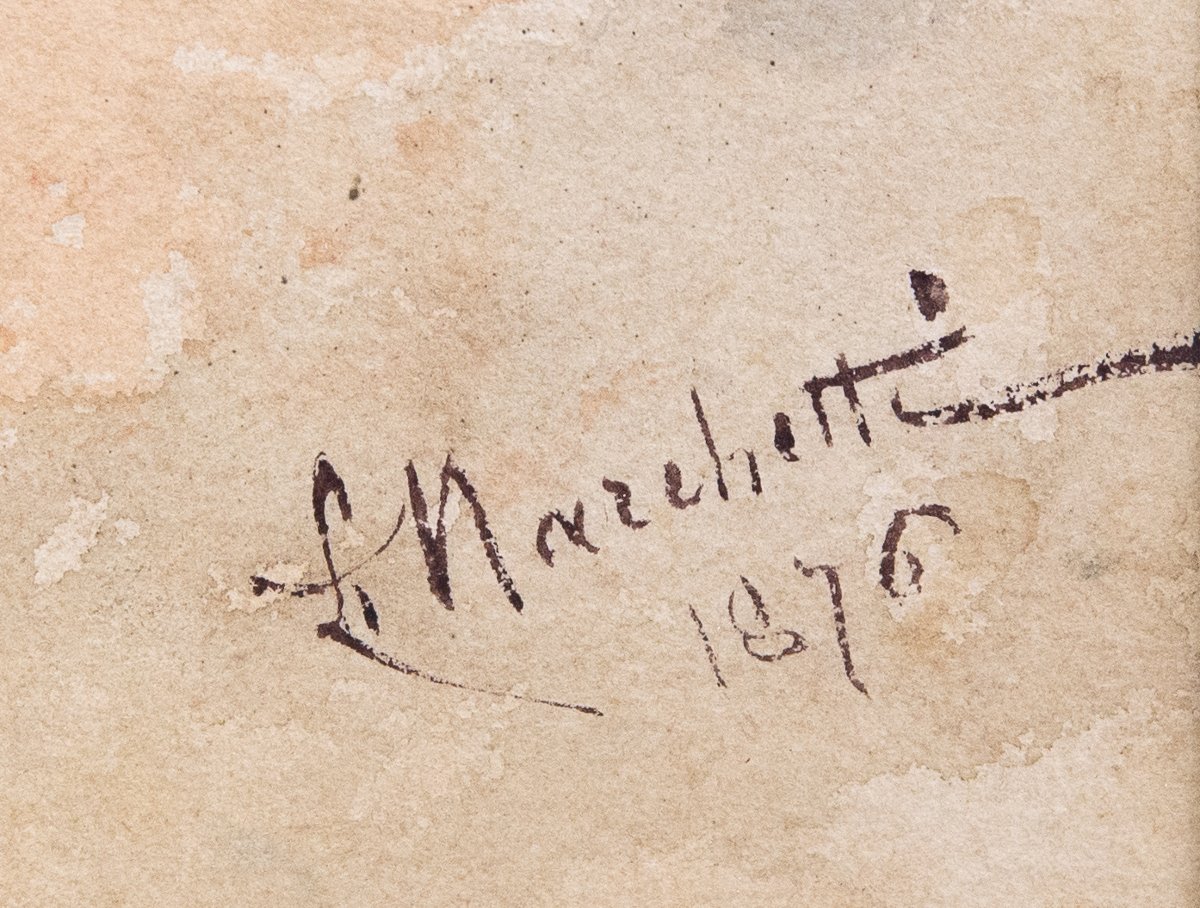 L Marchetti
1876